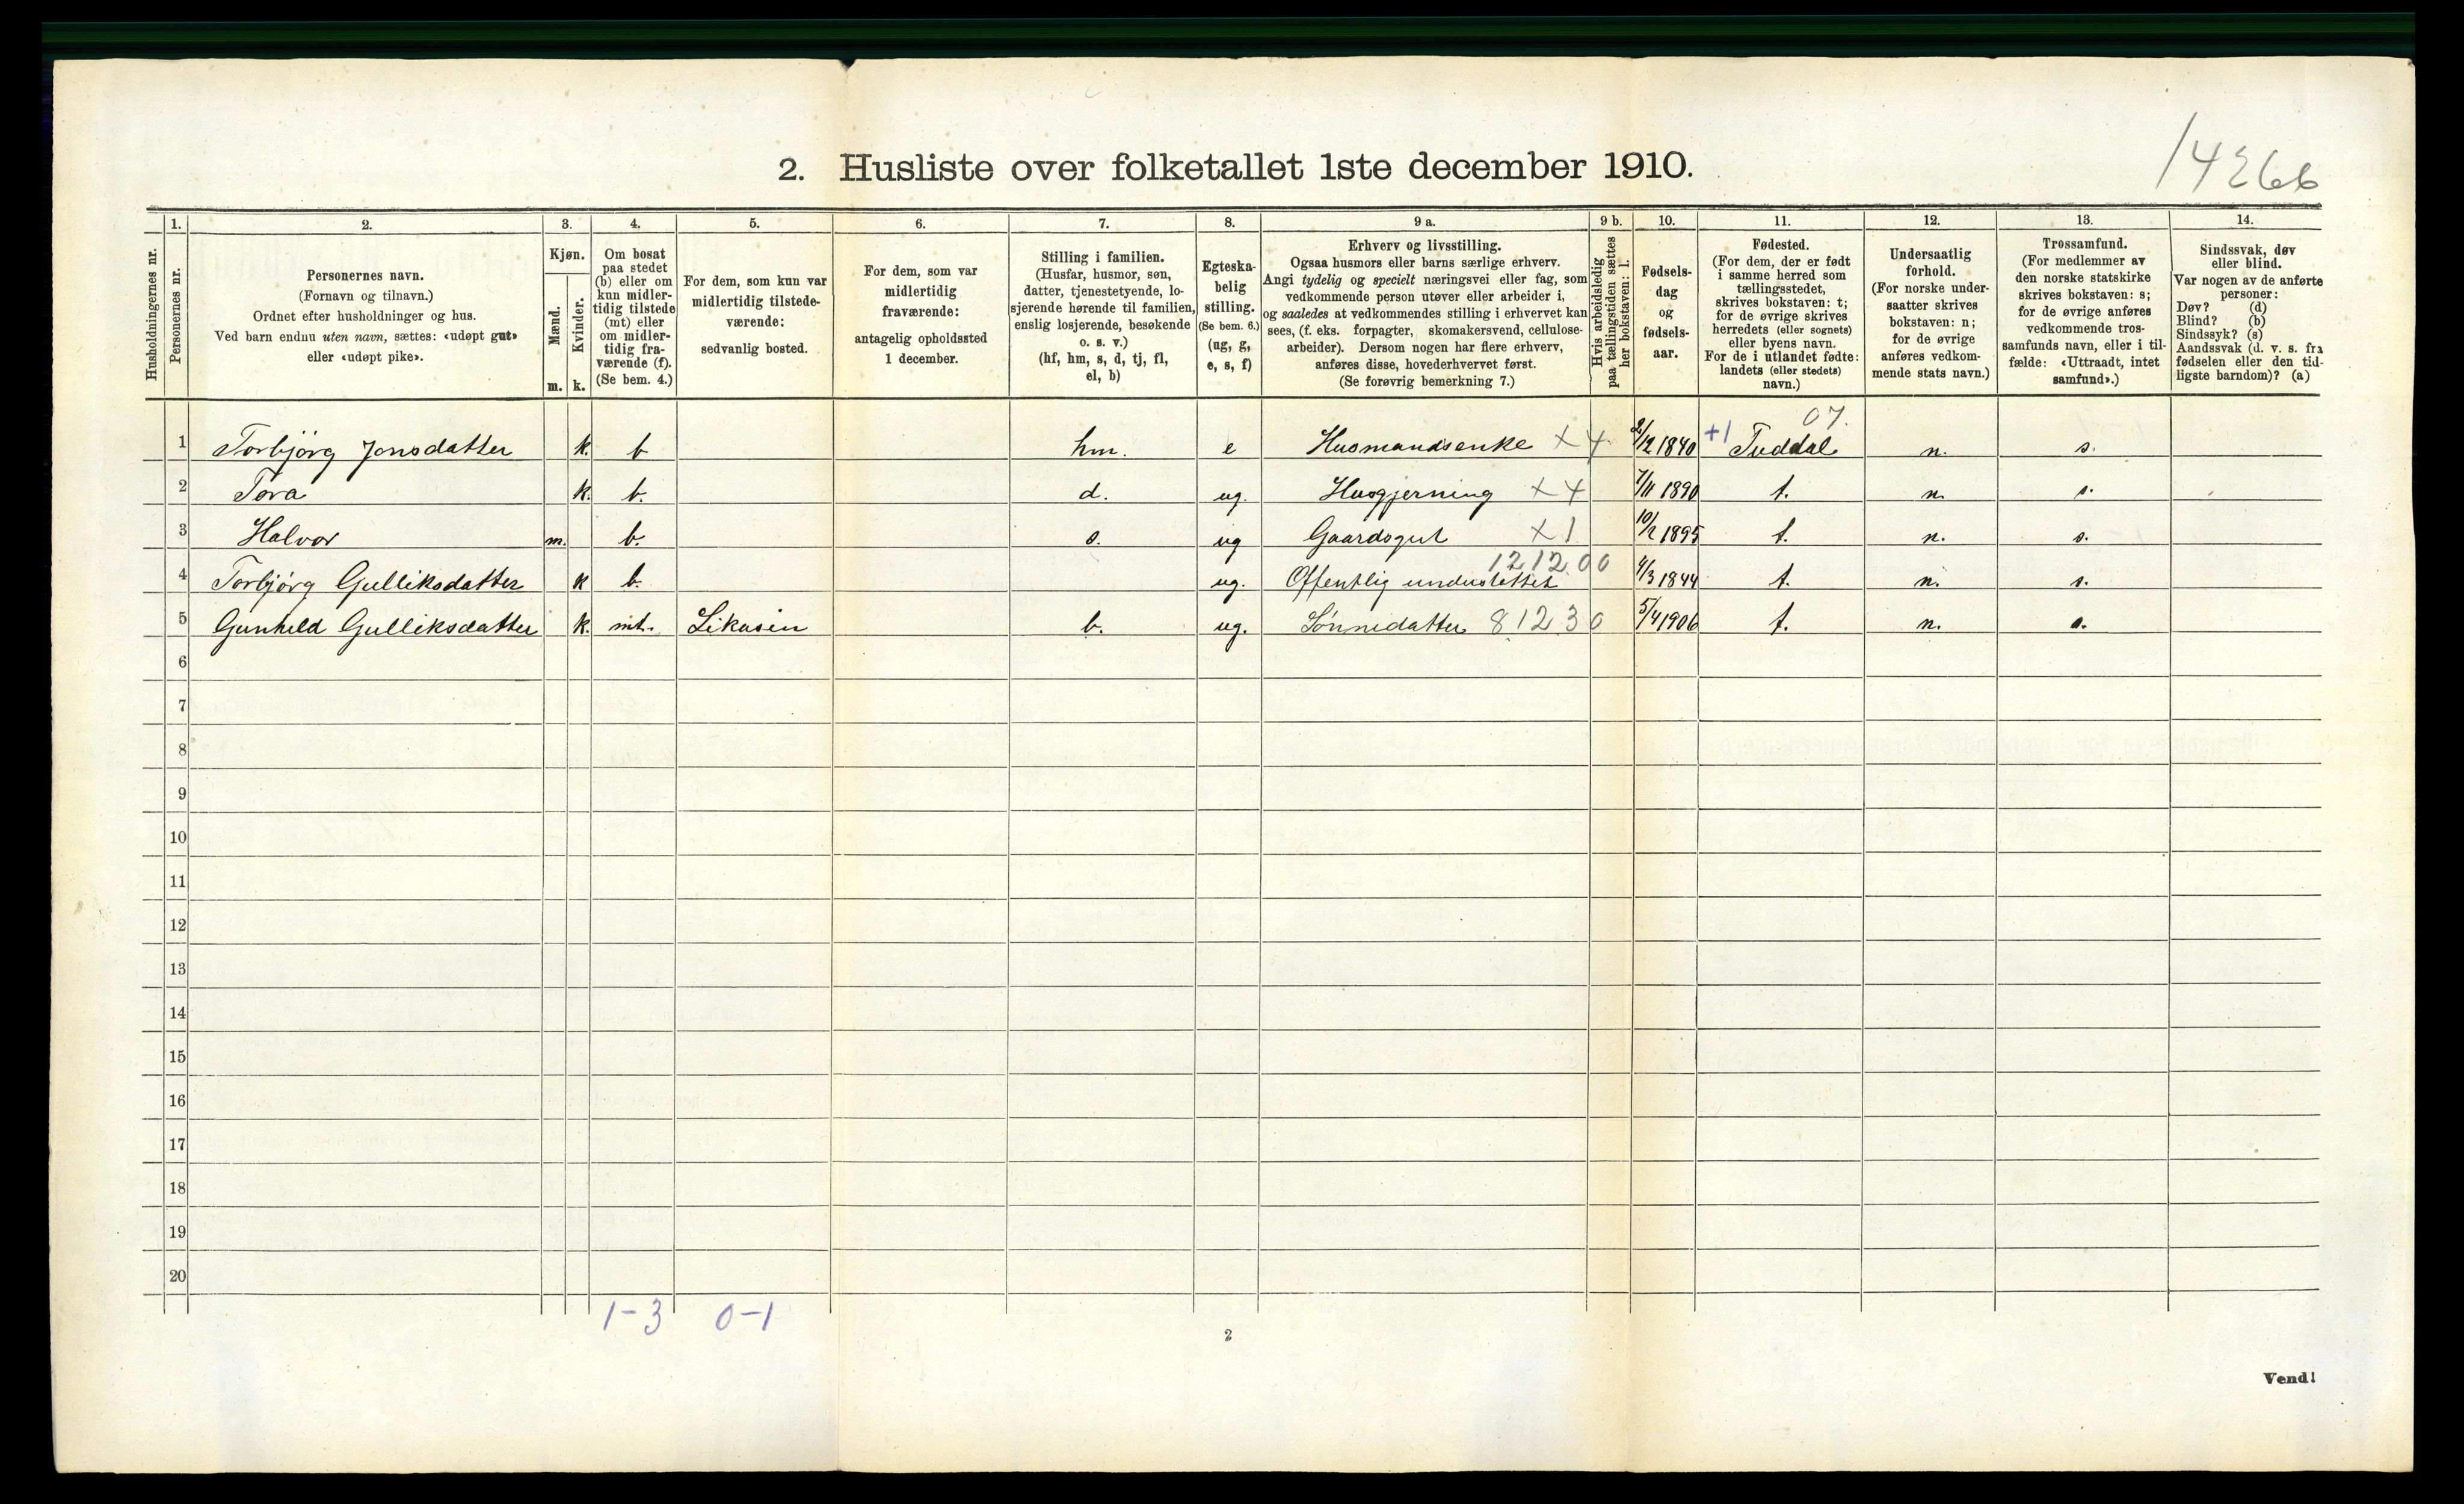 14266
2. Husliste over folketallet 1ste december 1910.
1. 2. 3. 4. 5. 6. 7. 8. 9 a. 9 b. 10. 11. 12. 13. 14.
Husholdningernes nr.
Personernes nr.
Personernes navn.
(Fornavn og tilnavn.)
Ordnet efter husholdninger og hus.
Ved barn endnu uten navn, sættes: «udøpt gut»
eller «udøpt pike».
Kjøn.
Mænd.
Kvinder.
m. k.
Om bosat
paa stedet
(b) eller om
kun midler-
tidig tilstede
(mt) eller
om midler-
tidig fra-
værende (f).
(Se bem. 4.)
For dem, som kun var
midlertidig tilstede-
værende:
sedvanlig bosted.
For dem, som var
midlertidig
fraværende:
antagelig opholdssted
1 december.
Stilling i familien.
(Husfar, husmor, søn,
datter, tjenestetyende, lo-
sjerende hørende til familien,
enslig losjerende, besøkende
o. s. v.)
(hf, hm, s, d, tj, fl,
el, b)
Egteska-
belig
stilling.
(Se bem. 6.)
(ug, g,
e, s, f)
Erhverv og livsstilling.
Ogsaa husmors eller barns særlige erhverv.
Angi tydelig og specielt næringsvei eller fag, som
vedkommende person utøver eller arbeider i,
og saaledes at vedkommendes stilling i erhvervet kan
sees, (f. eks. forpagter, skomakersvend, cellulose-
arbeider). Dersom nogen har flere erhverv,
anføres disse, hovederhvervet først.
(Se forøvrig bemerkning 7.)
Hvis arbeidsledig
paa tællingstiden sættes
her bokstaven: l.
Fødsels-
dag
og
fødsels-
aar.
Fødested.
(For dem, der er født
i samme herred som
tællingsstedet,
skrives bokstaven: t;
for de øvrige skrives
herredets (eller sognets)
eller byens navn.
For de i utlandet fødte:
landets (eller stedets)
navn.)
Undersaatlig
forhold.
(For norske under-
saatter skrives
bokstaven: n;
for de øvrige
anføres vedkom-
mende stats navn.)
Trossamfund.
(For medlemmer av
den norske statskirke
skrives bokstaven: s;
for de øvrige anføres
vedkommende tros-
samfunds navn, eller i til-
fælde: «Uttraadt, intet
samfund».)
Sindssvak, døv
eller blind.
Var nogen av de anførte
personer:
Døv? (d)
Blind? (b)
Sindssyk? (s)
Aandssvak (d. v. s. fra
fødselen eller den tid-
ligste barndom)? (a)
07.
1 Torbjörg Jonsdatter k. b hm. e Husmandsenke x 4 2/12 1840 +1 Tuddal n. s.
2 Tora k. b. d. ug. Husgjerning x 4 7/11 1890 t. n. s.
3 Halvor m. b. s. ug Gaardsgut x 1 10/2 1895 t. n. s.
121200
4 Torbjörg Gulliksdatter k b. ug. Offentlig understöttet 4/3 1844 t. n. s.
5 Gunhild Gulliksdatter k. mt. Likasin b. ug. Sönnedatter 81230 5/4 1906 t. n. s.
6
7
8
9
10
11
12
13
14
15
16
17
18
19
20
1-3 0-1
2
Vend!